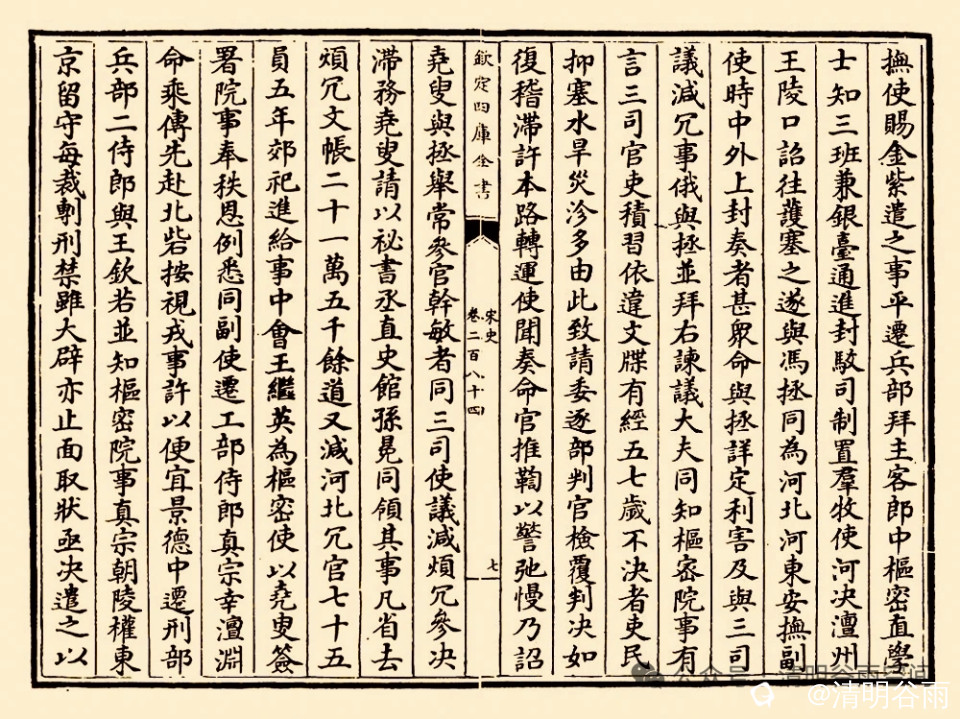 撫使賜金紫遣之事平遷兵部拜主客郎中樞密直學
士知三班兼銀臺通進封駁司制置羣牧使河决澶州
王陵口詔往護塞之遂與馮拯同為河北河東安撫副
使時中外上封奏者甚衆命與拯詳定利害及與三司
議減冗事俄與拯並拜右諫議大夫同知樞密院事有
言三司官吏積習依違文牒有經五七歲不决者吏民
抑塞水旱災沴多由此致請委逐部判官檢覆判决如
復稽滯許本路轉運使聞奏命官推鞫以警弛慢乃詔
欽定四庫全書
宋史
卷二百八十四
七
堯叟與拯舉常參官幹敏者同三司使議減煩冗參决
滯務堯叟請以祕書丞直史館孫冕同領其事凡省去
煩冗文帳二十一萬五千餘道又減河北冗官七十五
員五年郊祀進給事中會王繼英為樞密使以堯叟簽
署院事奉秩恩例悉同副使遷工部侍郎真宗幸澶淵
命乘傳先赴北砦按視戎事許以便宜景德中遷刑部
兵部二侍郎與王欽若並知樞密院事真宗朝陵權東
京留守每裁剸刑禁雖大辟亦止面取狀亟决遣之以
公众号·清明谷雨空间
@清明谷雨